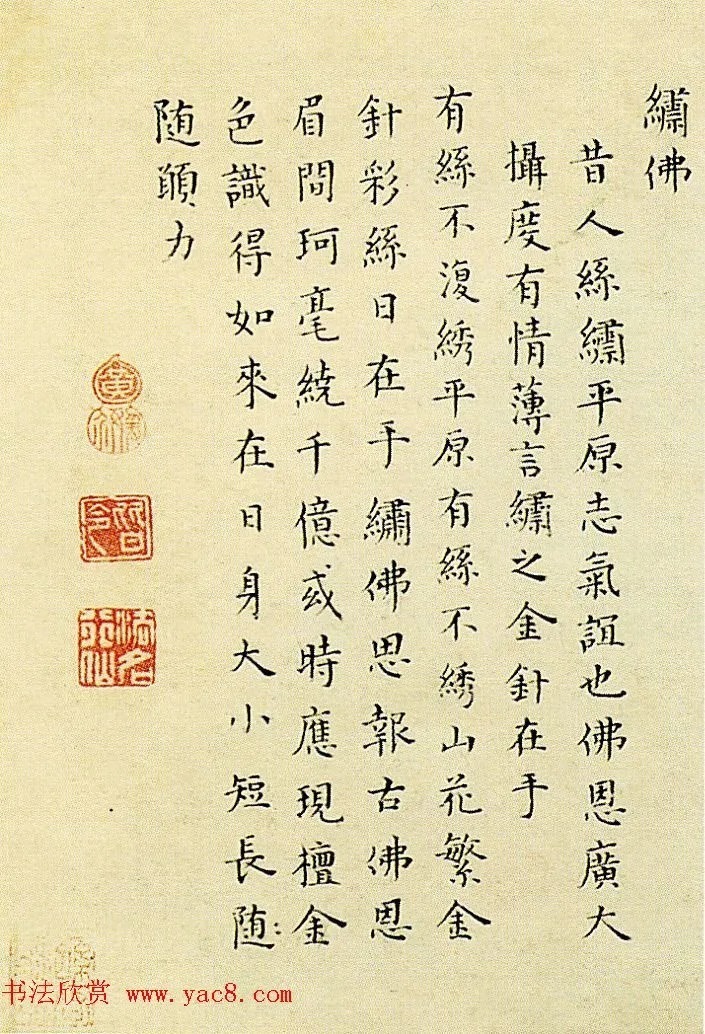 繡佛
昔人絲繡平原志氣誼也佛恩廣大
攝度有情薄言繡之金針在手
有絲不復綉平原有絲不綉山花繁金
針彩絲日在手繡佛思報古佛恩
眉間珂毫繞千億或時應現檀金
色識得如來在日身大小短長随
随願力
书法欣赏 www.yac8.com